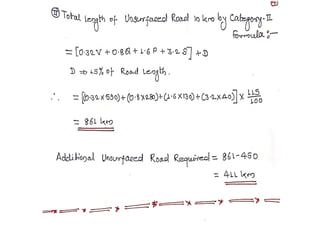 Ⅱ Total Length of Unsurfaced Road in km by Category-II
formula:-
= [0.32V + 0.8Q + 1.6P + 3.2S] + D
D ⇒ 15% of Road Length.
∴ = [(0.32×590)+(0.8×280)+(1.6×130)+(3.2×40)] × 115/100
= 861 km
Additional Unsurfaced Road Required = 861-450
= 411 km